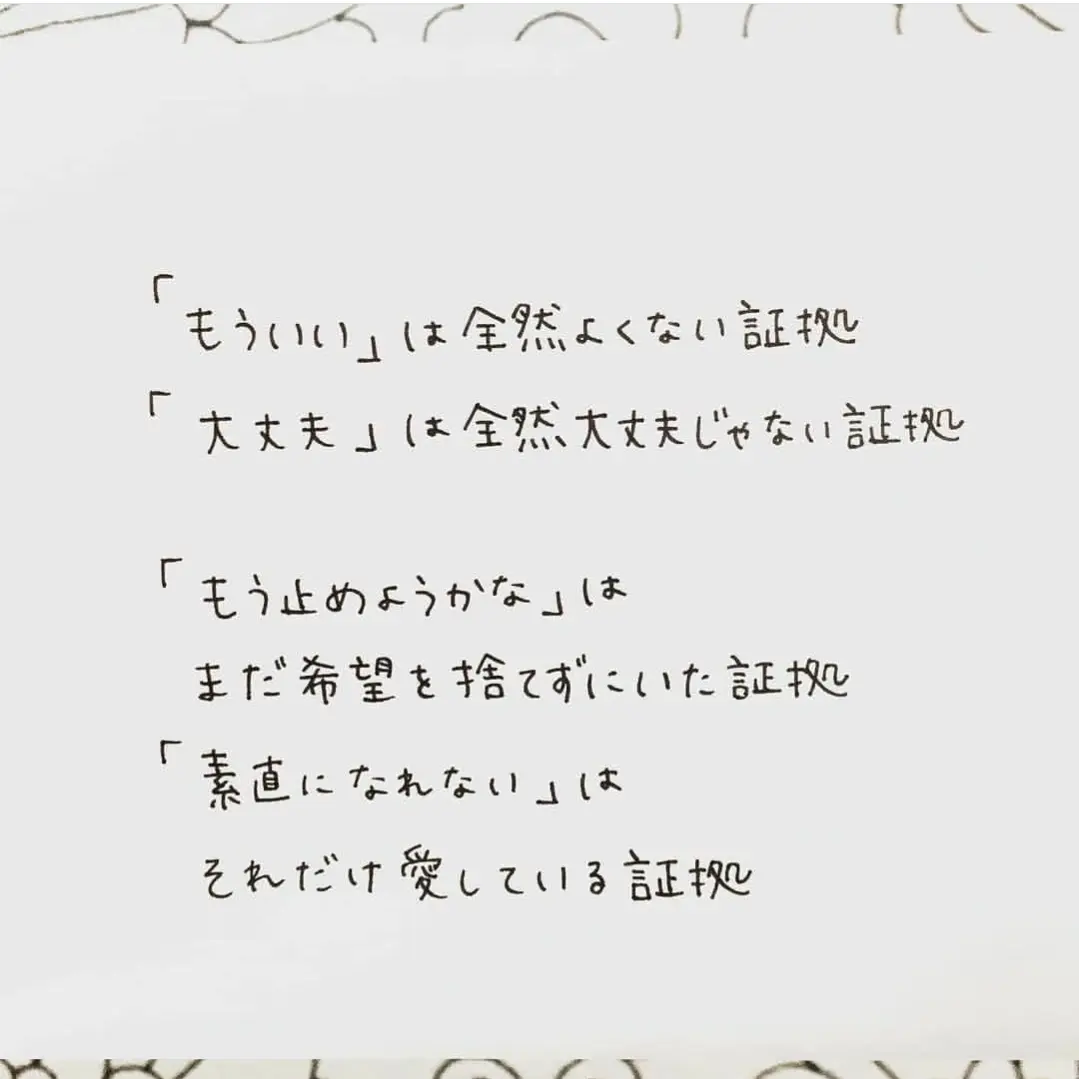 「もういい」は全然よくない証拠
「大丈夫」は全然大丈夫じゃない証拠
「もう止めようかな」は
まだ希望を捨てずにいた証拠
「素直になれない」は
それだけ愛している証拠